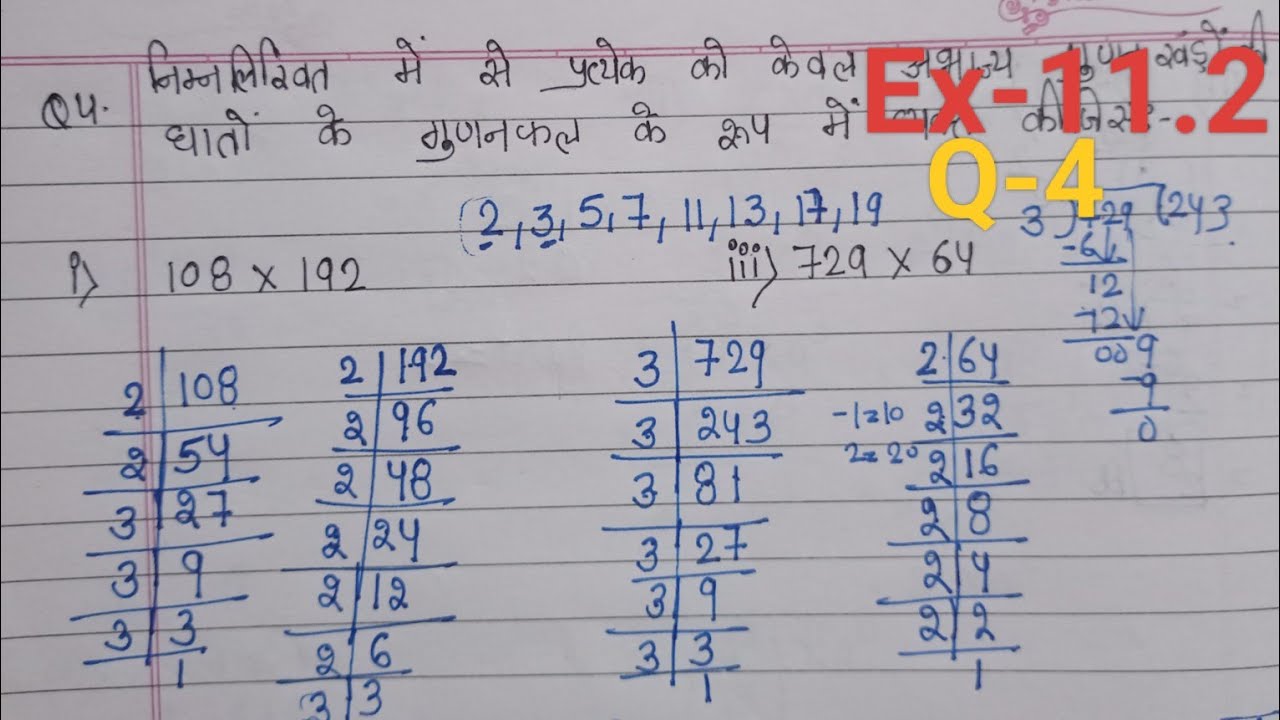 Q4. निम्नलिखित में से प्रत्येक को केवल अभाज्य गुणनखंडों की
घातों के गुणनफल के रूप में व्यक्त कीजिए:-
Ex-11.2
Q-4
(2,3,5,7,11,13,17,19
i) 108 x 192
iii) 729 x 64
3)729(243
-6
12
12
009
-9
0
2|108
2|54
3|27
3|9
3|3
1
2|192
2|96
2|48
2|24
2|12
2|6
3|3
3|729
3|243
3|81
3|27
3|9
3|3
1
2|64
2|32
2|16
2|8
2|4
2|2
1